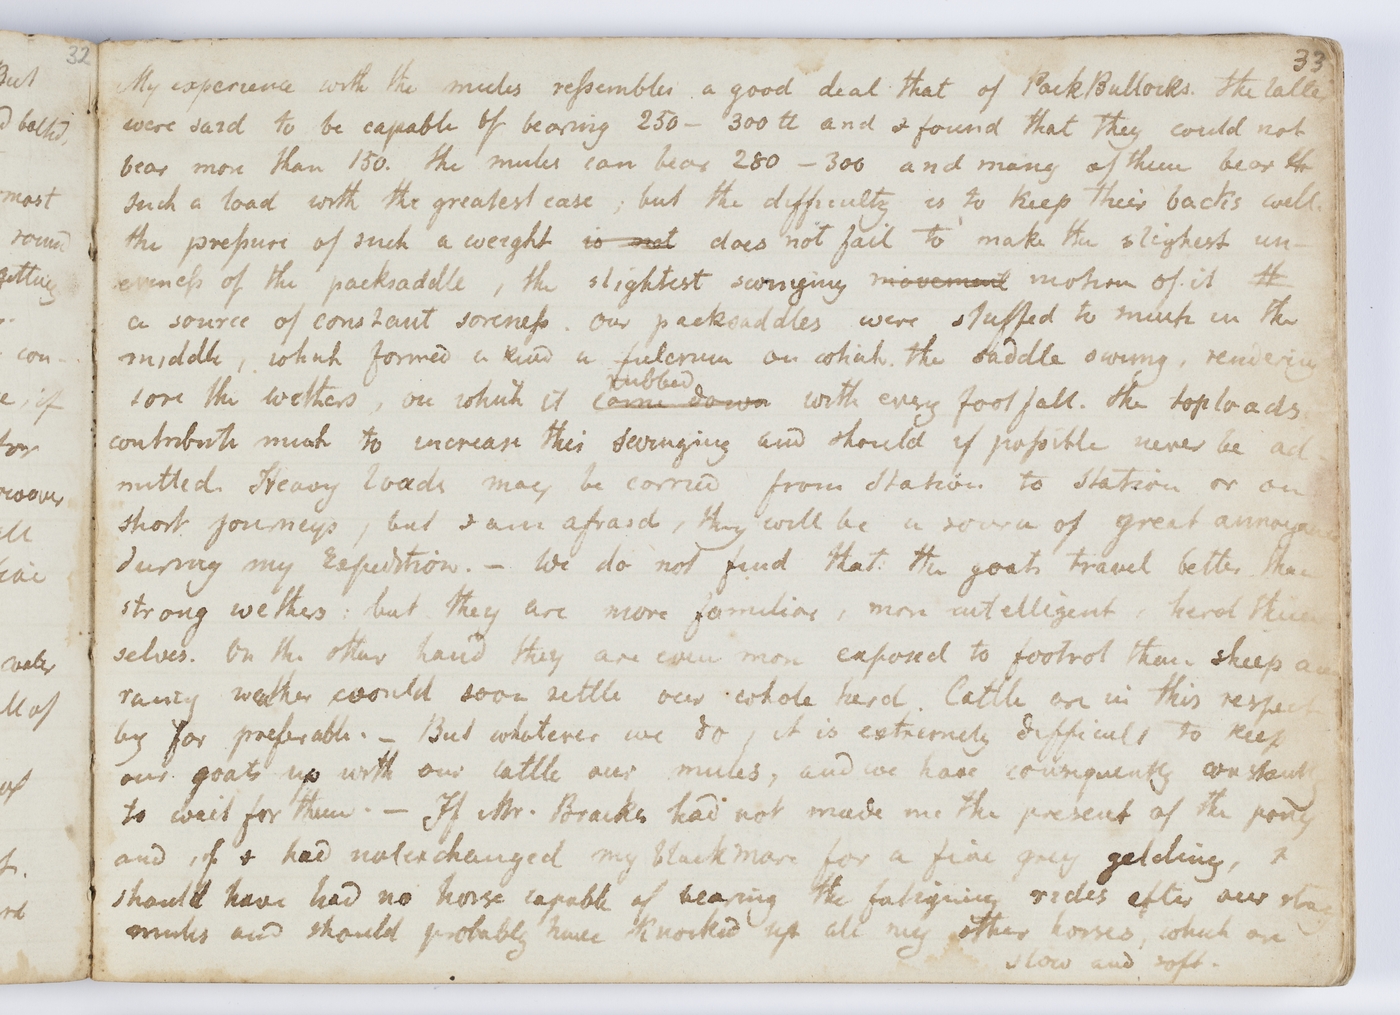 33
My experience with the mules ressembles a good deal that of PackBullocks. The latter
were said to be capable of bearing 250 – 300 ℔ and I found that they could not
bear more than 150. the mules can bear 280 – 300 and many of them bear th
such a load with the greatest ease; but the difficulty is to keep their backs well.
the pressure of such a weight is not does not fail to make the slighest un-
eveness of the packsaddle, the slightest swinging movement motion of it
a source of constant soreness. our packsaddles were stuffed to much in the
middle, which formed a kind a fulcrum on which the saddle swung, rendering
rubbed
sore the withers, on which it came down with every footfall. the toploads
contribute much to increase this swinging and should if possible never be ad-
mitted. Heavy loads may be carried from station to station or on
short journeys, but I am afraid, they will be a source of great annoyance
during my Expedition. – We do not find that the goats travel better than
strong wethers: but they are more familiar, more intelligent, herd them
selves. On the other hand they are even more exposed to footrot than sheep and
rainy weather would soon settle our whole herd. Cattle are in this respect
by far preferable. – But whatever we do, it is extremely difficult to keep
our goats up with our cattle our mules, and we have consequently constantly
to wait for them. – If Mr. Bracker had not made me the present of the pony
and if I had not exchanged my black mare for a fine grey gelding, I
should have had no horse capable of bearing the fatiguing rides after our stray
mules and should probably have knocked up all my other horses, which are
slow and soft.
32